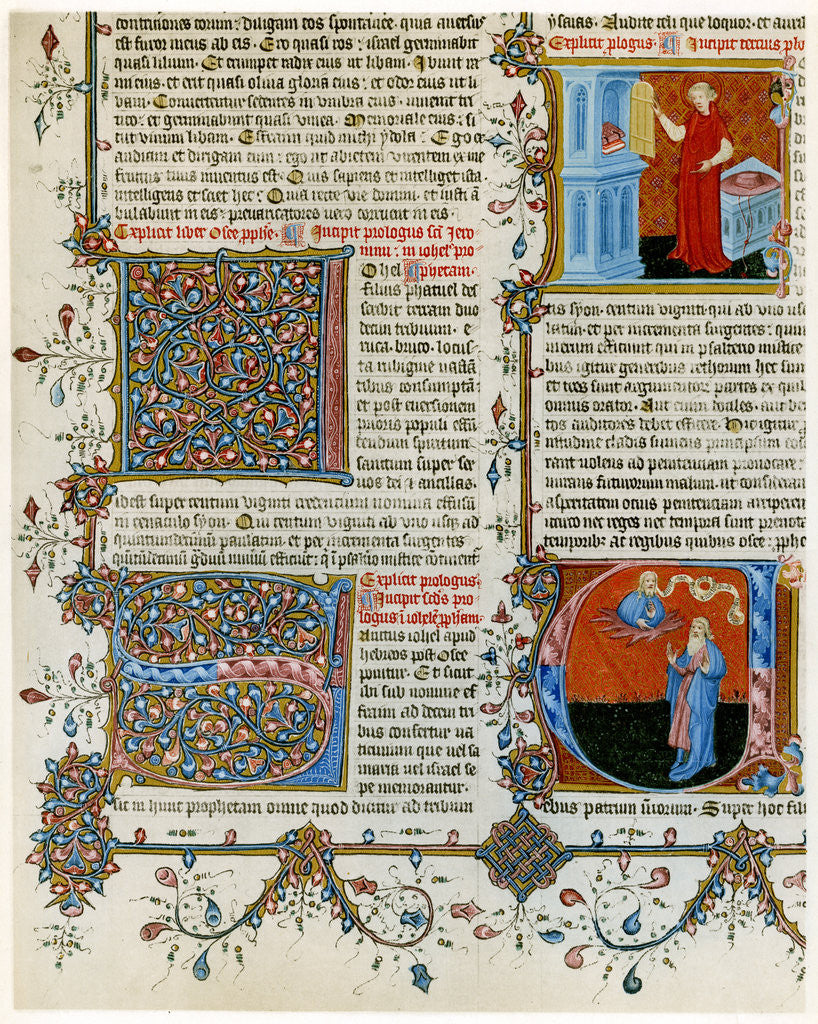 contritiones eorum: diligam eos spontanee. quia aversus
est furor meus ab eis. Ero quasi ros: israel germinabit
quasi lilium. Et erumpet radix eius ut libani. Ibunt ra
mi eius. et erit quasi oliva gloria eius: et odor eius ut li
bani. Convertentur sedentes in umbra eius. vivent tri
tico: et germinabunt quasi vinea. Memoriale eius: si
cut vinum libani. Effraim quid michi ydola. Ego ex
audiam et dirigam eum: ego ut abietem virentem ex me
fructus tuus inventus est. Quis sapiens et intelliget ista
intelligens et sciet hec: Quia recte vie domini. et iusti am
bulabunt in eis: prevaricatores vero corruent in eis.
Explicit liber Osee pphe. Incipit prologus sci Jero
nimi in iohel pro
phetam.
Ohel
filius phatuel des
cribit terram duo
decim tribuum. e
ruca. bruco. locus
ta rubigine vastan
tibus consumptam
et post eversionem
prioris populi effu
dendum spiritum
sanctum super ser
vos dei et ancillas.
idest super centum viginti credentium nomina effusum
in cenaculo syon. Qui centum viginti ab uno usque ad
quintumdecimum paulatim et per incrementa surgentes
Explicit prologus.
Incipit scds pro
logus i iohele ppham.
anctus iohel apud
hebreos post Osee
ponitur. Et sicut
ibi sub nomine ef
fraim ad decem tri
bus confertur va
ticinium que vel sa
maria vel israel se
pe memorantur.
sic in hunc prophetam omne quod dicitur ad tribum
ysaias. Audite celi que loquor. et auri
Explicit plogus. Incipit tercius plo
tis syon. centum viginti qui ab uno us
latim et per incrementa surgentes: quin
merum efficiunt qui in psalterio mistice
bus igitur generibus rethorum hec sunt
et tres sunt argumentorum partes ex quib
omnis orator. Aut enim
tos auditores debet efficere. Hic igitur
nitudine cladis sumens principium
rant volens ad penitenciam provocare:
murans futurorum malum. ut consideran
asperitatem ocius penitenciam arriperent
iccirco nec reges nec tempora sunt prenota
temporibus at regibus quibus osee: pphe
ebus patrum vestrorum. Super hoc fili